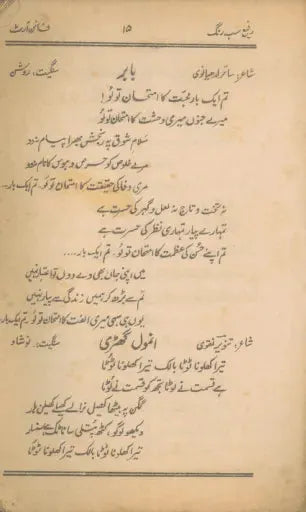 رفیع سب رنگ ۱۵ فائن آرٹ
شاعر: ساحر لدھیانوی بابر سنگیت: روشن
تم ایک بار محبت کا امتحان تو لو!
میرے جنوں میری وحشت کا امتحان تو لو
سلام شوق پہ رنجش بھرا پیام نہ دو
میرے خلوص کو حرص و ہوس کا نام نہ دو
میری وفا کی حقیقت کا امتحان تو لو۔ تم ایک بار...
نہ تخت و تاج نہ لعل و گہر کی حسرت ہے
تمہارے پیار تمہاری نظر کی حسرت ہے
تم اپنے حُسن کی عظمت کا امتحان تو لو۔ تم ایک بار....
میں اپنی جان بھی دے دوں تو اعتبار نہیں
تم سے بڑھ کر ہمیں زندگی سے پیار نہیں
یوں ہی سہی میری الفت کا امتحان تو لو تم ایک بار
شاعر: تنویر نقوی انمول گھڑی سنگیت: نوشاد
تیرا کھلونا ٹوٹا بالک تیرا کھلونا ٹوٹا
ہے قسمت نے لوٹا تجھ کو قسمت نے لوٹا
گگن پہ بیٹھا کھیل نرالے کیسے کھیلن ہار
دیکھو لوگو، کٹھ پتلی سا ناچ رہا ہے سنسار
تیرا کھلونا ٹوٹا بالک تیرا کھلونا ٹوٹا